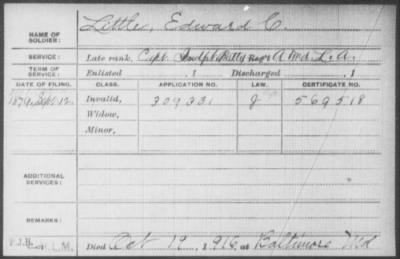 NAME OF SOLDIER: Little, Edward C.
SERVICE: Late rank, Capt. Batty A Md. L. A.
TERM OF SERVICE: Enlisted , 1 Discharged , 1
DATE OF FILING. CLASS. APPLICATION NO. LAW. CERTIFICATE NO.
1879, Sept. 12. Invalid, 309331 g 569518
Widow,
Minor,
ADDITIONAL SERVICES:
REMARKS:
Died Oct 19, 1916, at Baltimore Md